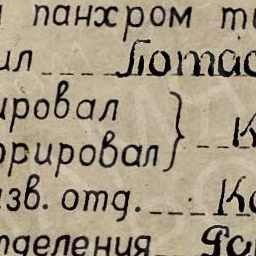 панхром
ил Потас
ировал
К
орировал
зв. отд. Ко
тделения